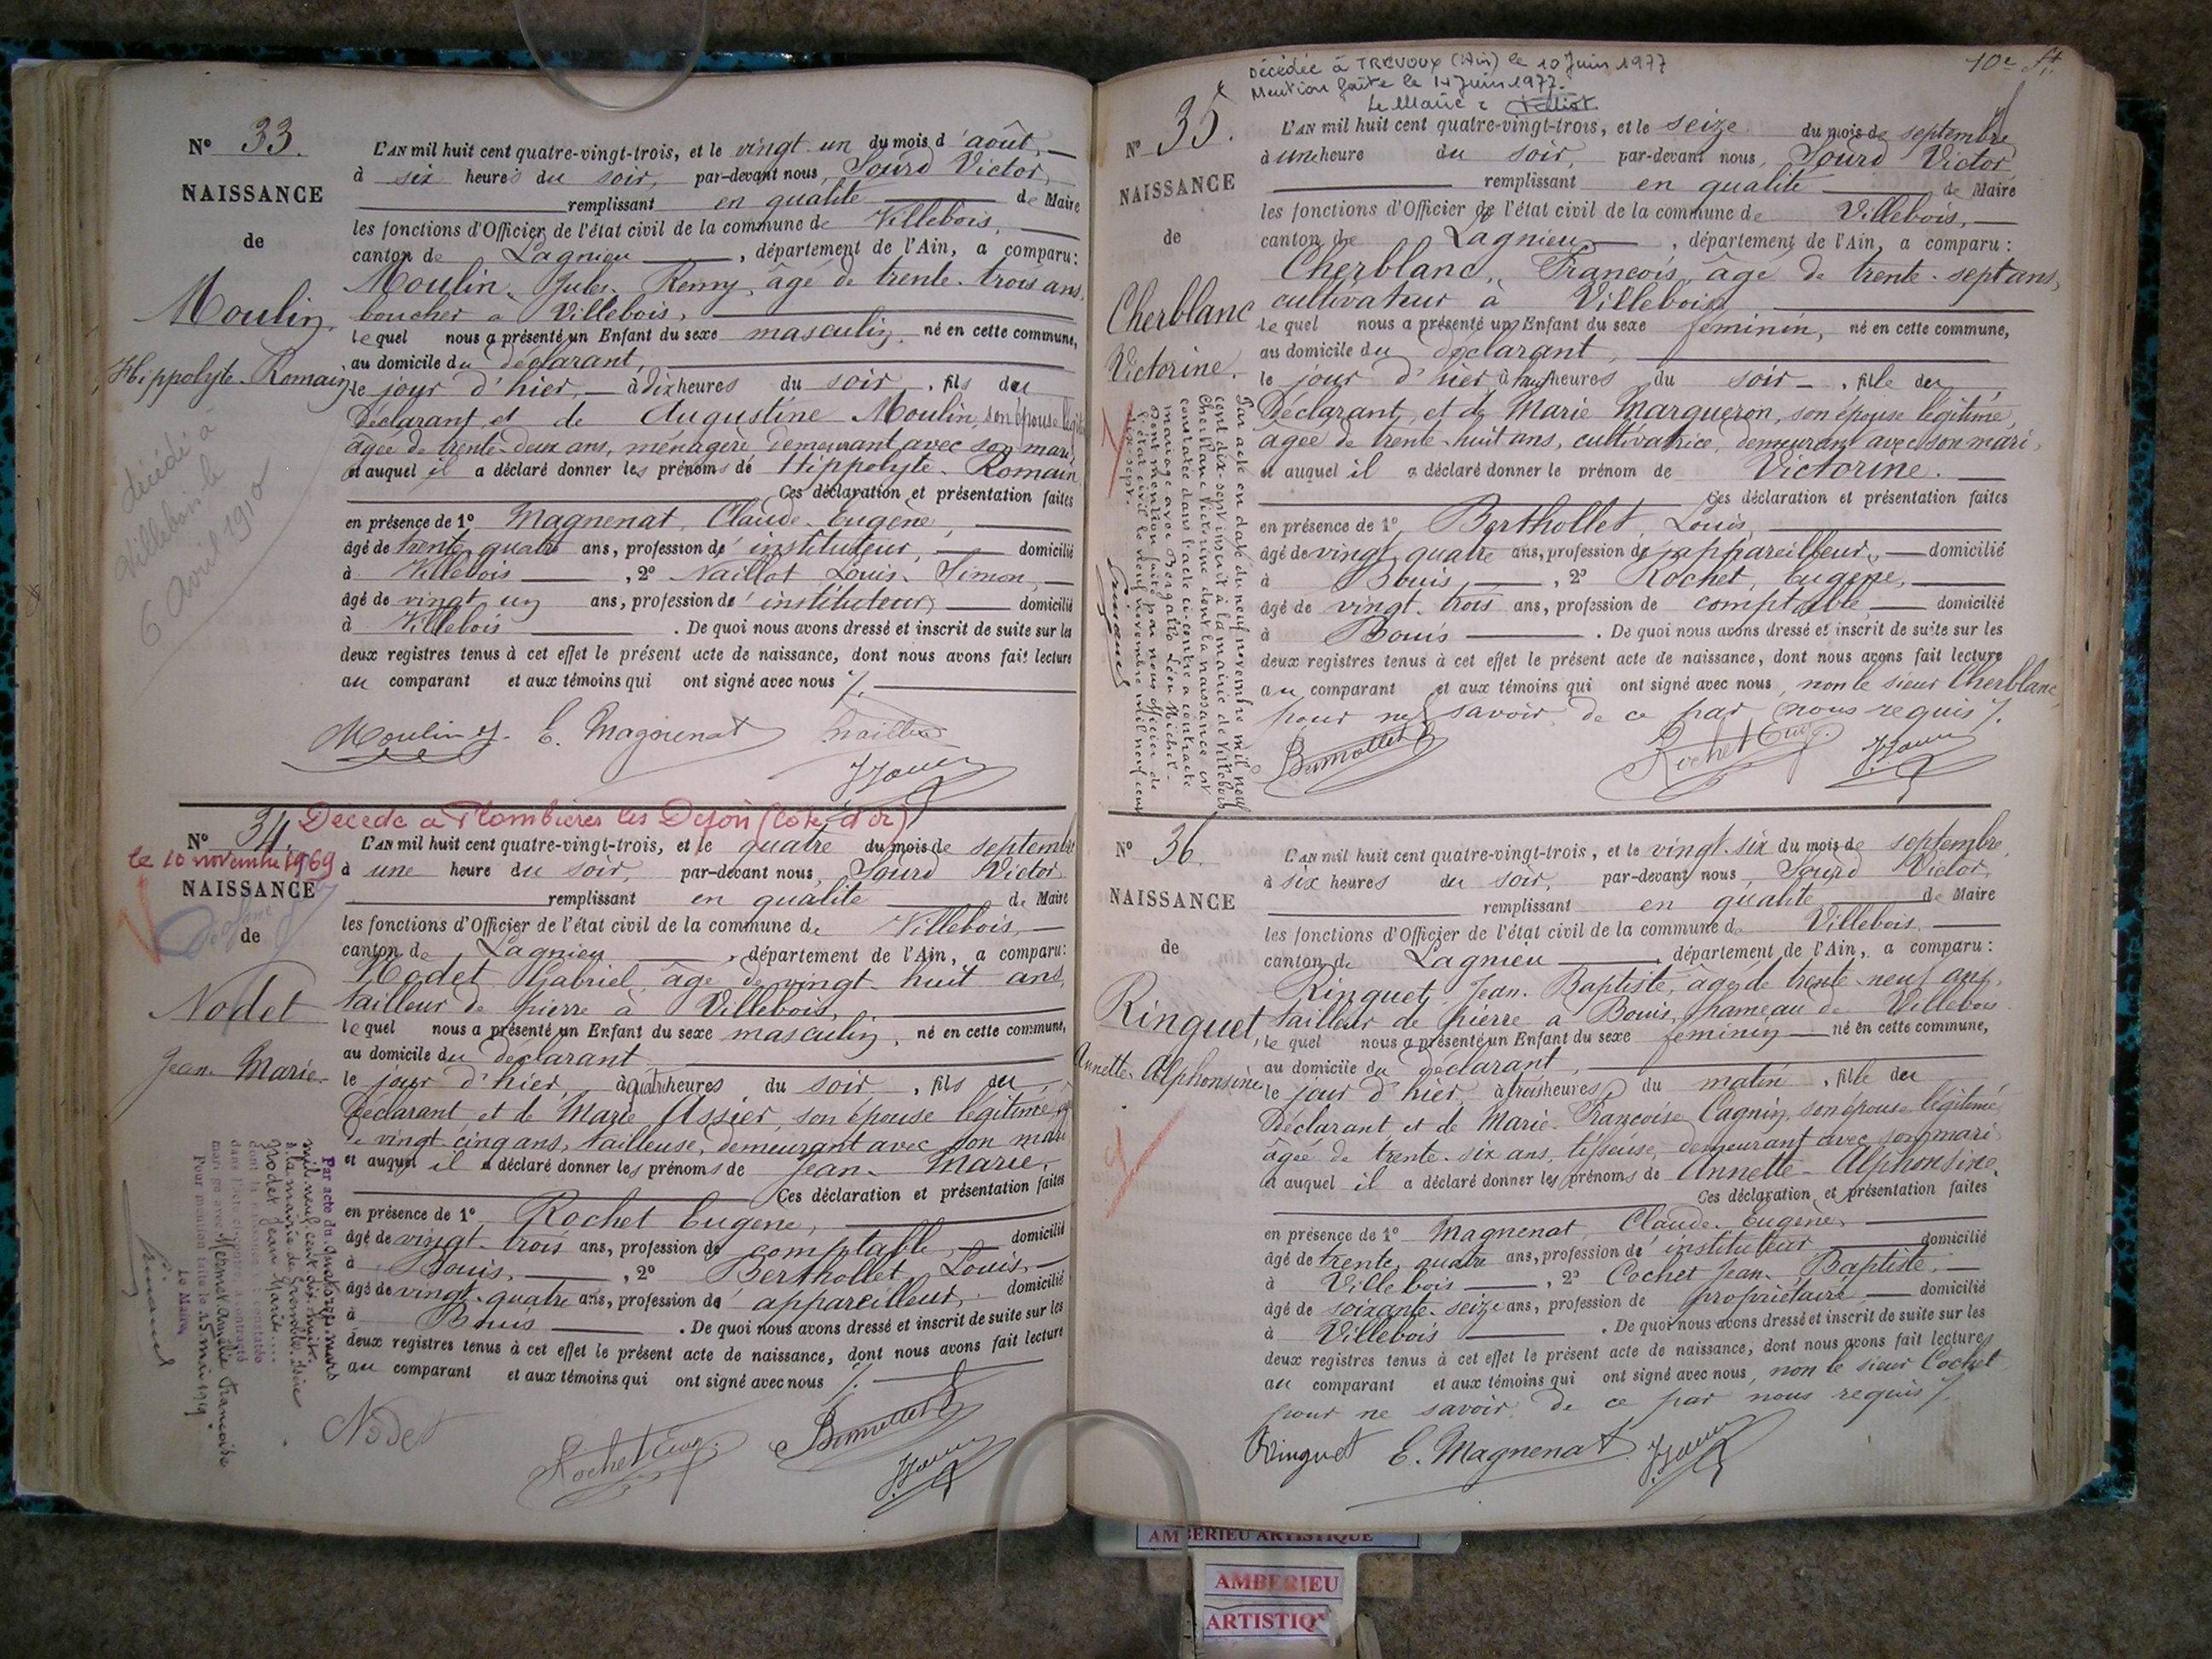 N° 33.
NAISSANCE
de
Moulin
Hippolyte-Romain
décédé à
Villebois le
6 avril 1910
L'AN mil huit cent quatre-vingt-trois, et le vingt-un du mois d'août,
à six heures du soir, par-devant nous, Sourd Victor,
remplissant en qualité de Maire
les fonctions d'Officier de l'état civil de la commune de Villebois,
canton de Lagnieu, département de l'Ain, a comparu:
Moulin, Jules-Remy, âgé de trente-trois ans,
boucher à Villebois,
lequel nous a présenté un Enfant du sexe masculin, né en cette commune,
au domicile du déclarant,
le jour d'hier, à dix heures du soir, fils du
Déclarant, et de Augustine Moulin, son épouse
âgée de trente-deux ans, ménagère, demeurant avec son mari,
et auquel il a déclaré donner les prénoms de Hippolyte-Romain
Ces déclaration et présentation faites
en présence de 1° Magnenat, Claude-Eugène,
âgé de trente-quatre ans, profession d'instituteur, domicilié
à Villebois, 2° Naillot Louis-Simon,
âgé de vingt-un ans, profession d'instituteur, domicilié
à Villebois. De quoi nous avons dressé et inscrit de suite sur les
deux registres tenus à cet effet le présent acte de naissance, dont nous avons fait lecture
au comparant et aux témoins qui ont signé avec nous
Moulin E. Magnenat
N° 34.
Décédé à Plombières les Dijon (Côte d'Or)
le 10 novembre 1969
NAISSANCE
de
Nodet
Jean-Marie
L'AN mil huit cent quatre-vingt-trois, et le quatre du mois de septembre
à une heure du soir, par-devant nous, Sourd Victor
remplissant en qualité de Maire
les fonctions d'Officier de l'état civil de la commune de Villebois,
canton de Lagnieu, département de l'Ain, a comparu:
Nodet Gabriel, âgé de vingt-huit ans,
tailleur de pierre à Villebois,
lequel nous a présenté un Enfant du sexe masculin, né en cette commune,
au domicile du déclarant
le jour d'hier, à quatre heures du soir, fils du
Déclarant et de Marie Assier, son épouse légitime
de vingt-cinq ans, tailleuse, demeurant avec son mari
et auquel il a déclaré donner les prénoms de Jean-Marie,
Ces déclaration et présentation faites
en présence de 1° Rochet Eugène,
âgé de vingt-trois ans, profession de comptable, domicilié
à Bouis, 2° Berthollet Louis,
âgé de vingt-quatre ans, profession d'appareilleur, domicilié
à Bouis. De quoi nous avons dressé et inscrit de suite sur les
deux registres tenus à cet effet le présent acte de naissance, dont nous avons fait lecture
au comparant et aux témoins qui ont signé avec nous
Par acte du quatorze mars
mil neuf cent dix-huit
à la mairie de Grenoble Isère
Nodet Jean Marie
dont la naissance est constatée
dans l'acte ci-contre, a contracté
mariage avec Mermet Amélie Françoise
Pour mention faite le 25 mai 1919
Le Maire
Nodet Rochet Eug.
Décédée à TREVOUX (Ain) le 10 Juin 1977
Mention faite le 14 Juin 1977.
Le Maire
10e ft.
N° 35.
NAISSANCE
de
Cherblanc
Victorine.
L'AN mil huit cent quatre-vingt-trois, et le seize du mois de septembre
à une heure du soir, par-devant nous, Sourd Victor
remplissant en qualité de Maire
les fonctions d'Officier de l'état civil de la commune de Villebois,
canton de Lagnieu, département de l'Ain, a comparu:
Cherblanc, François, âgé de trente-sept ans,
cultivateur à Villebois
lequel nous a présenté un Enfant du sexe féminin, né en cette commune,
au domicile du déclarant,
le jour d'hier, à huit heures du soir, fille du
Déclarant, et de Marie Margueron, son épouse légitime,
âgée de trente-huit ans, cultivatrice, demeurant avec son mari,
et auquel il a déclaré donner le prénom de Victorine.
Ces déclaration et présentation faites
en présence de 1° Berthollet, Louis,
âgé de vingt-quatre ans, profession d'appareilleur, domicilié
à Bouis, 2° Rochet, Eugène,
âgé de vingt-trois ans, profession de comptable domicilié
à Bouis. De quoi nous avons dressé et inscrit de suite sur les
deux registres tenus à cet effet le présent acte de naissance, dont nous avons fait lecture
au comparant et aux témoins qui ont signé avec nous, non le sieur Cherblanc,
pour ne savoir, de ce par nous requis
Par acte en date du neuf novembre mil neuf
cent dix-sept inscrit à la mairie de Villebois
Cherblanc Victorine dont la naissance est
constatée dans l'acte ci-contre a contracté
mariage avec Léon Michel
Dont mention faite par nous officier de
l'état civil le neuf novembre mil neuf cent
dix-sept.
Rochet Eug.
N° 36.
NAISSANCE
de
Ringuet,
Annette-Alphonsine
L'AN mil huit cent quatre-vingt-trois, et le vingt-six du mois de septembre,
à six heures du soir, par-devant nous, Sourd Victor,
remplissant en qualité de Maire
les fonctions d'Officier de l'état civil de la commune de Villebois
canton de Lagnieu, département de l'Ain, a comparu:
Ringuet, Jean-Baptiste, âgé de trente-neuf ans,
tailleur de pierre à Bouis, hameau de Villebois
lequel nous a présenté un Enfant du sexe féminin né en cette commune,
au domicile du déclarant,
le jour d'hier, à trois heures du matin, fille du
Déclarant et de Marie-Françoise Cagnin, son épouse légitime,
âgée de trente-six ans, tisseuse, demeurant avec son mari
et auquel il a déclaré donner les prénoms de Annette-Alphonsine.
Ces déclaration et présentation faites
en présence de 1° Magnenat, Claude-Eugène,
âgé de trente-quatre ans, profession d'instituteur domicilié
à Villebois, 2° Cochet Jean-Baptiste,
âgé de soixante-seize ans, profession de propriétaire domicilié
à Villebois. De quoi nous avons dressé et inscrit de suite sur les
deux registres tenus à cet effet le présent acte de naissance, dont nous avons fait lecture
au comparant et aux témoins qui ont signé avec nous, non le sieur Cochet
pour ne savoir, de ce par nous requis
Ringuet E. Magnenat
AMBERIEU ARTISTIQUE
AMBERIEU
ARTISTIQ